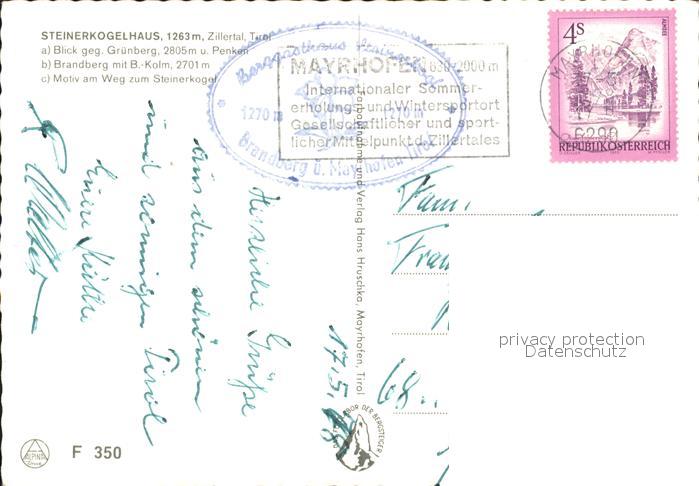 STEINERKOGELHAUS, 1263 m, Zillertal, Tirol
a) Blick geg. Grünberg, 2805 m u. Penken
b) Brandberg mit B.-Kolm, 2701 m
c) Motiv am Weg zum Steinerkogel
Berggasthaus Steinerkogel
1270 m 1270 m
Brandberg ü. Mayrhofen-Tirol
MAYRHOFEN 630-2000 m
Internationaler Sommer-
erholungs- und Wintersportort
Gesellschaftlicher und sport-
licher Mittelpunkt d. Zillertales
MAYRHOFEN
6290
4S
ALMSEE
REPUBLIK ÖSTERREICH
17.5.
Herzliche Grüße
aus dem schönen
und sonnigen Tirol
Verlag Hans Hruschka, Mayrhofen, Tirol
Fam.
Frau
68..
privacy protection
Datenschutz
ALPINA
F 350
DER BERGSTEIGER